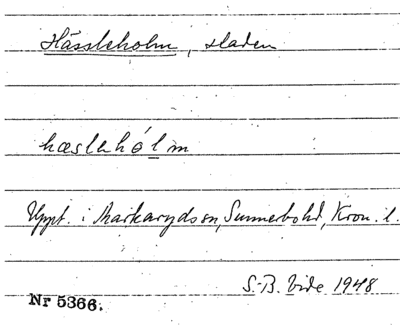 Hässleholm, staden
hæsləhólm
Uppt. i Markaryds sn, Sunnerbo hd, Kron. l.
S-B. Vide 1948
Nr 5366.